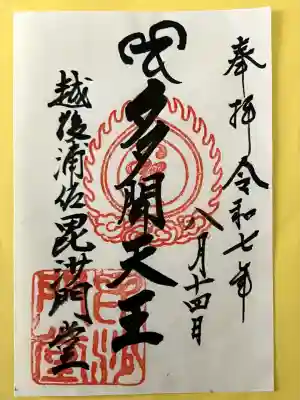 奉拝 令和七年
八月十四日
多聞天王
越後浦佐毘沙門堂